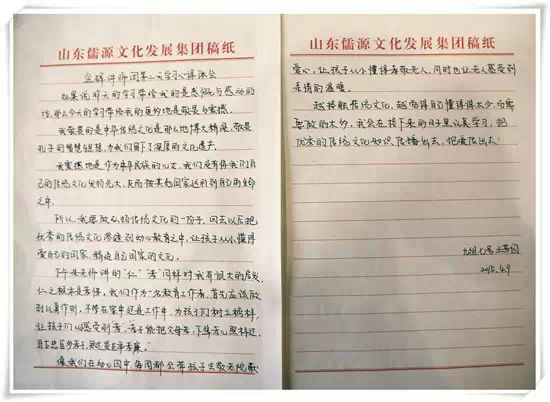 山东儒源文化发展集团稿纸
金牌讲师团第二天学习心得体会
如果说昨天的学习带给我的是感悟与感动的
话，那么今天的学习带给我的更多的是敬畏与震撼。
我敬畏的是中华传统文化是那么地博大精深，敬畏
孔子的智慧思想，为我们留下了深厚的文化遗产。
我震撼地是作为中华民族的儿女，我们没有将我们自
己的传统文化发扬光大，反而被其他国家运用到自己的生命
之中。
所以，我要做弘扬传统文化的一份子，回去以后把
优秀的传统文化渗透到幼儿教育之中，让孩子从小懂得
爱自己的国家，精通自己国家的文化。
下午老师讲的"仁""孝"同样对我有很大的启发，
仁之根本是孝悌，我们作为一名教育工作者，首先应该做
到以身作则，不管在家中还是工作中，为孩子们树立榜样，
让孩子们从心感受到孝，孝子能把父母孝，下辈孝儿照样还
自古忠臣多孝子，
像我们在幼儿园中，每周都会带孩子去敬老院献
山东儒源文化发展集团稿纸
爱心，让孩子从小懂得孝敬老人，同时也让老人感受到
亲情的温暖。
越接触传统文化，越觉得自己懂得得太少，而需
要做的太多，我会在接下来的日子里认真学习，把
优秀的传统文化知识传播出去，把爱传出去！
2015.4.9